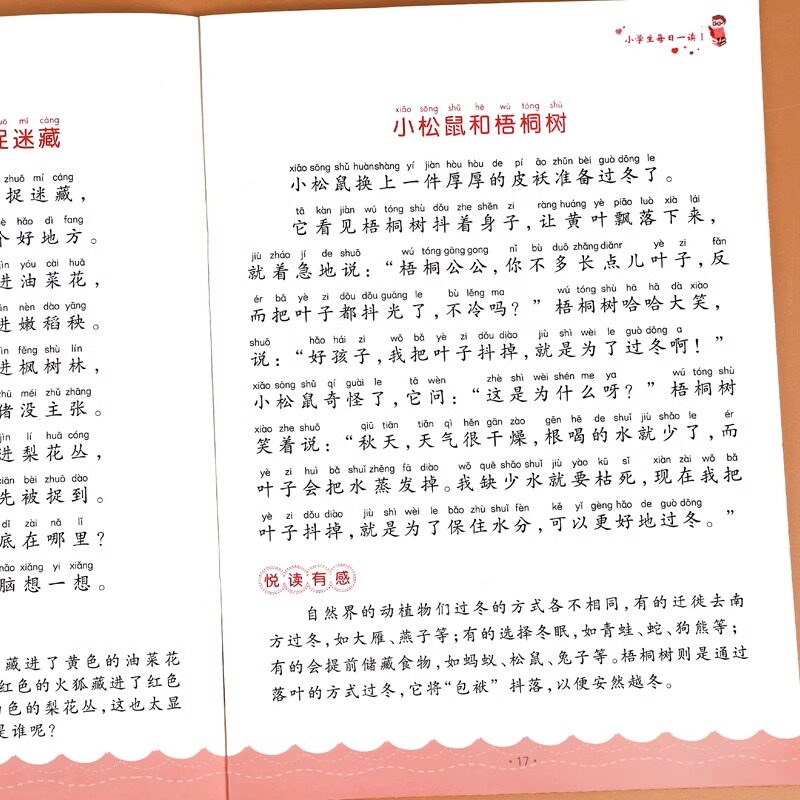 mí cáng
迷藏
zhuō mí cáng
捉迷藏，
hǎo dì fang
个好地方。
yóu cài huā
进油菜花，
nèn dào yāng
进嫩稻秧。
fēng shù lín
进枫树林，
méi zhǔ zhāng
猪没主张。
lí huā cóng
进梨花丛，
bèi zhuō dào
先被捉到。
dǐ zài nǎ lǐ
底在哪里？
nǎo xiǎng yi xiǎng
脑想一想。
藏进了黄色的油菜花
红色的火狐藏进了红色
色的梨花丛，这也太显
是谁呢？
小学生每日一读 1
xiǎo sōng shǔ hé wú tóng shù
小松鼠和梧桐树
xiǎo sōng shǔ huànshàng yí jiàn hòu hòu de pí ǎo zhǔn bèi guò dōng le
小松鼠换上一件厚厚的皮袄准备过冬了。
tā kàn jiàn wú tóng shù dǒu zhe shēn zi ràng huáng yè piāo luò xià lái
它看见梧桐树抖着身子，让黄叶飘落下来，
jiù zháo jí de shuō wú tóng gōng gong nǐ bù duō zhǎng diǎnr yè zi fǎn
就着急地说：“梧桐公公，你不多长点儿叶子，反
ér bǎ yè zi dōu dǒu guāng le bù lěng ma wú tóng shù hā hā dà xiào
而把叶子都抖光了，不冷吗？”梧桐树哈哈大笑，
shuō hǎo hái zi wǒ bǎ yè zi dǒu diào jiù shì wèi le guò dōng a
说：“好孩子，我把叶子抖掉，就是为了过冬啊！”
xiǎo sōng shǔ qí guài le tā wèn zhè shì wèi shén me ya wú tóng shù
小松鼠奇怪了，它问：“这是为什么呀？”梧桐树
xiào zhe shuō qiū tiān tiān qì hěn gān zào gēn hē de shuǐ jiù shǎo le ér
笑着说：“秋天，天气很干燥，根喝的水就少了，而
yè zi huì bǎ shuǐ zhēng fā diào wǒ quē shǎo shuǐ jiù yào kū sǐ xiàn zài wǒ bǎ
叶子会把水蒸发掉。我缺少水就要枯死，现在我把
yè zi dǒu diào jiù shì wèi le bǎo zhù shuǐ fèn kě yǐ gèng hǎo de guò dōng
叶子抖掉，就是为了保住水分，可以更好地过冬。”
悦读有感
自然界的动植物们过冬的方式各不相同，有的迁徙去南
方过冬，如大雁、燕子等；有的选择冬眠，如青蛙、蛇、狗熊等；
有的会提前储藏食物，如蚂蚁、松鼠、兔子等。梧桐树则是通过
落叶的方式过冬，它将“包袱”抖落，以便安然越冬。
·17·